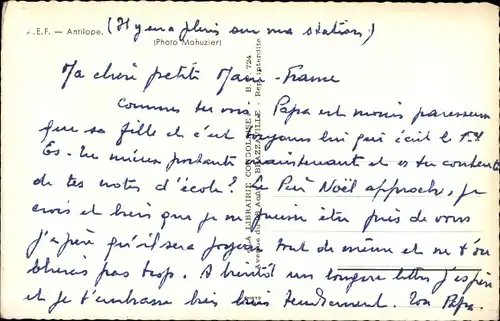 .E.F. — Antilope. (Il y en a plein sur ma station)
(Photo Mahuzier)
Ma chère petite Marie-France
Comme tu vois Papa est moins paresseux
que sa fille et c'est toujours lui qui écrit le 1er
Es-tu mieux portante maintenant et es tu contente
de tes notes d'école? Le Père Noël approche, je
crois et bien que je ne puisse être près de vous
j'espère qu'il sera joyeux tout de même et ne t'ou
bliera pas trop. A bientôt une longue lettre j'espère
et je t'embrasse bien bien tendrement. Ton Papa.
A LA LIBRAIRIE CONGOLAISE — B. P. 724
Avenue du 28 Août — BRAZZAVILLE - Repr. interdite